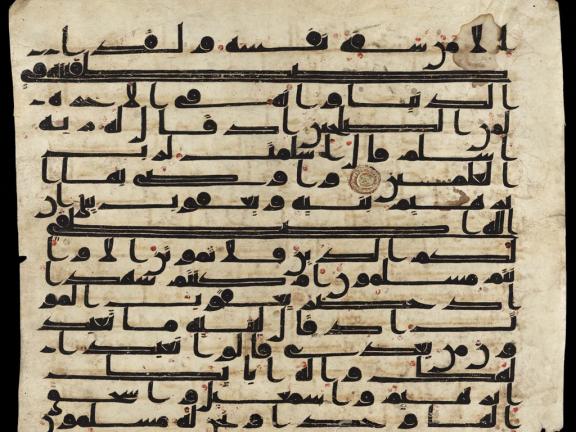 م الا من سفه نفسه ولقد ا
صطفينه في
الدنيا وانه في الاخره
لمن الصلحين اذ قال له ربه
اسلم قال اسلمت لرب
العلمين واوصى بها ا
برهيم بنيه ويعقوب يبني ان
الله اصطفى
لكم الدين فلا تموتن الا وا
نتم مسلمون ام كنتم شهدا
اذ حضر يعقوب المو
ت اذ قال لبنيه ما تعبد
ون من بعدي قالوا نعبد ا
لهك واله ابايك
ابرهيم واسمعيل واسحق
الها وحدا ونحن له مسلمون